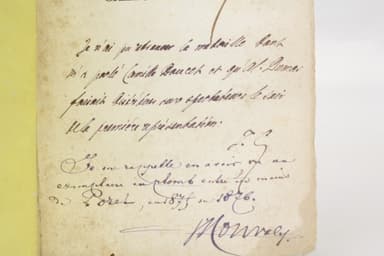 Je n'ai pu retrouver la médaille dont
m'a parlé Camille Doucet et qu'Al. Dumas
faisait distribuer aux spectateurs le soir
de la première représentation.
J. C
Je me rappelle en avoir vu un
exemplaire en plomb entre les mains
de Porel, en 1875 ou 1876.